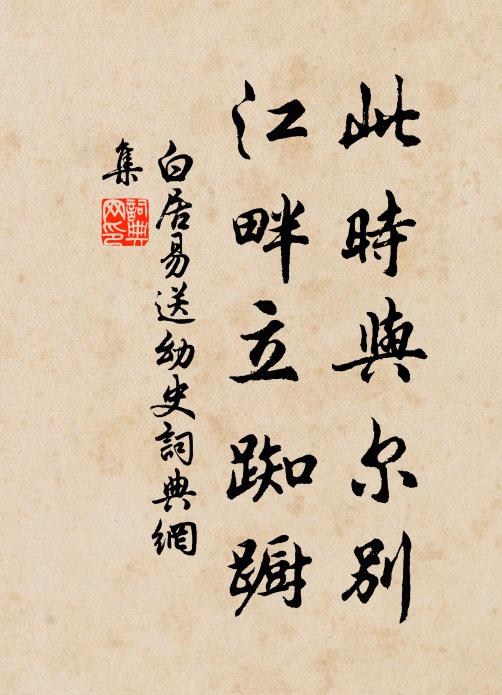 此時與尔別
江畔立踟蹰
白居易送幼史詞典網
集
詞典網印